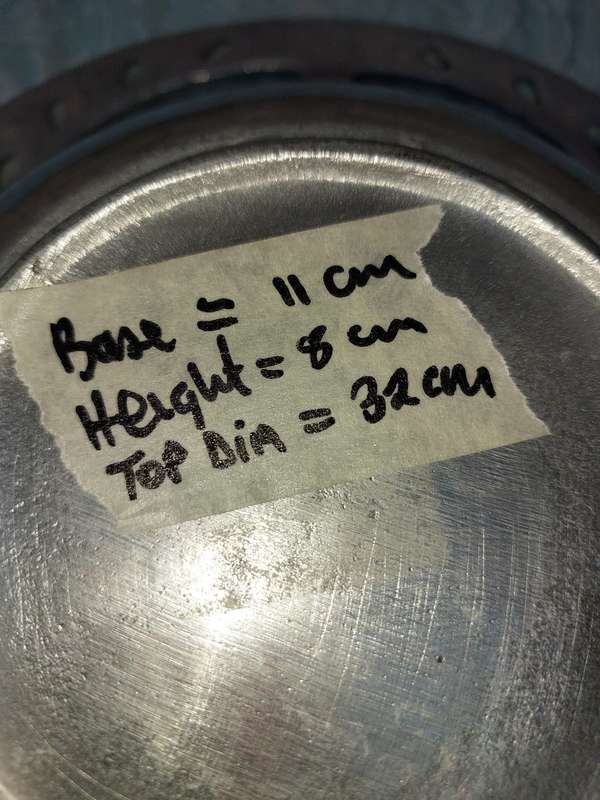 Base = 11 cm
Height = 8 cm
Top Dim = 32 cm